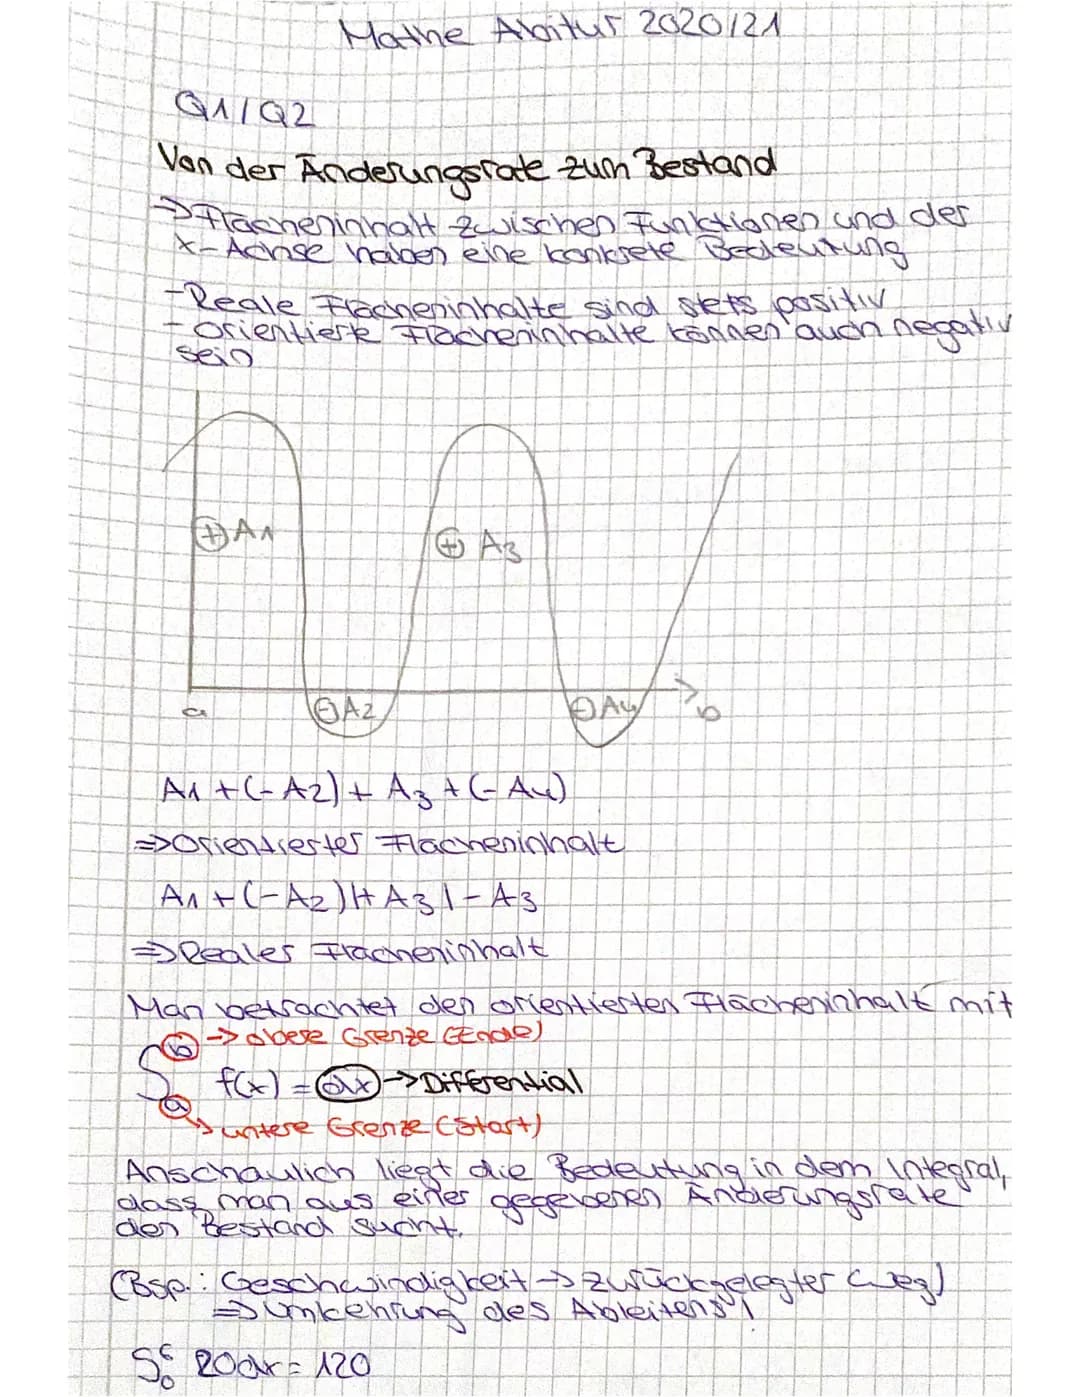 Mathe Abitur 2020/21
Q1/Q2
Von der Änderungsrate zum Bestand
→Flächeninhalt zwischen Funktionen und der
x-Achse haben eine konkrete Bedeutung
-Reale Flächeninhalte sind stets positiv
-Orientierte Flächeninhalte können auch negativ
sein
⊕A1
⊕ A3
a
⊖A2
⊖A4
b
A1 +(-A2)+ A3 +(-A4)
⇒Orientierter Flächeninhalt
A1 +(-A2)|+ A3 |- A3
⇒Reales Flächeninhalt
Man betrachtet den orientierten Flächeninhalt mit
b → obere Grenze (Ende)
∫ f(x) = dx →Differential
a → untere Grenze (Start)
Anschaulich liegt die Bedeutung in dem Integral,
dass man aus einer gegebenen Änderungsrate
den Bestand sucht.
(Bsp.: Geschwindigkeit → zurückgelegter Weg)
⇒Umkehrung des Ableitens!
∫₀⁶ 20dx = 120